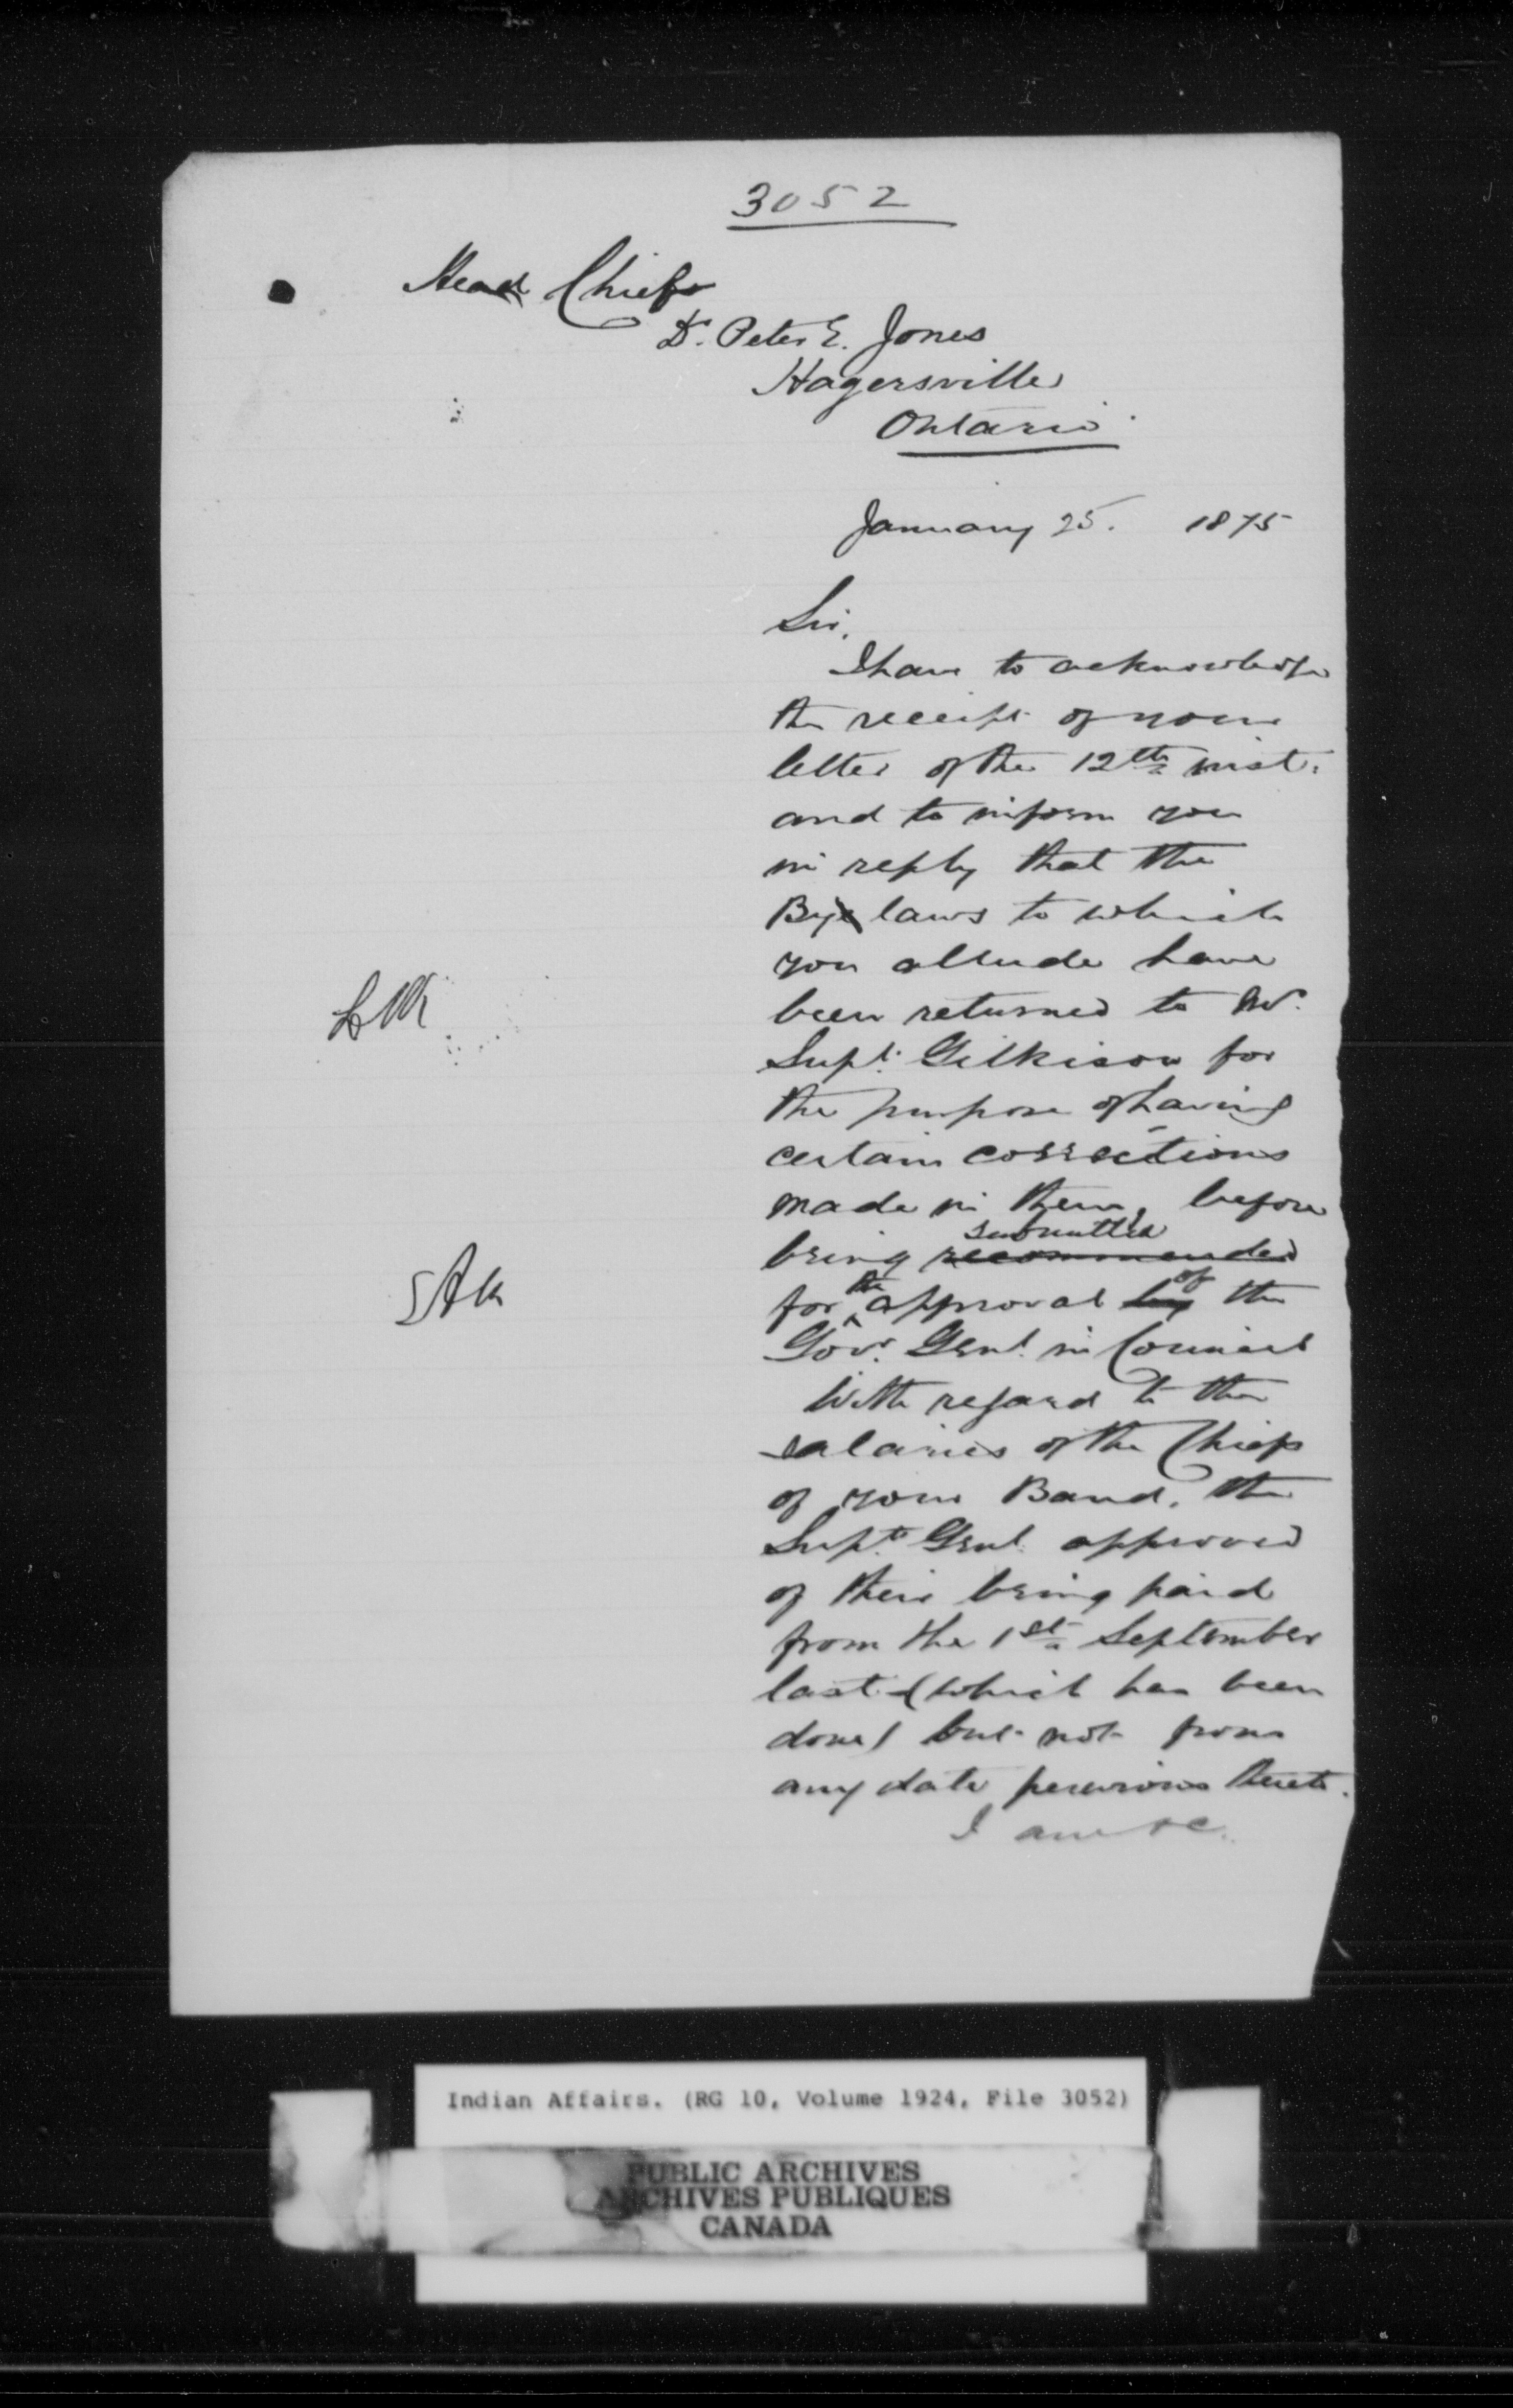 3052
Head Chief
Dr. Peter E. Jones
Hagersville
Ontario
January 25. 1875
Sir,
I have to acknowledge
the receipt of your
letter of the 12th inst.
and to inform you
in reply that the
Bye laws to which
you allude have
been returned to Mr.
Supt. Gilkison for
the purpose of having
certain corrections
made in them, before
submitted
being recommended
the of
for approval by the
Govr. Genl. in Council
With regard to the
salaries of the Chiefs
of your Band, the
Supt. Genl. approved
of their being paid
from the 1st September
last (which has been
done) but not from
any date previous thereto.
I am &c.
Indian Affairs. (RG 10, Volume 1924, File 3052)
PUBLIC ARCHIVES
ARCHIVES PUBLIQUES
CANADA